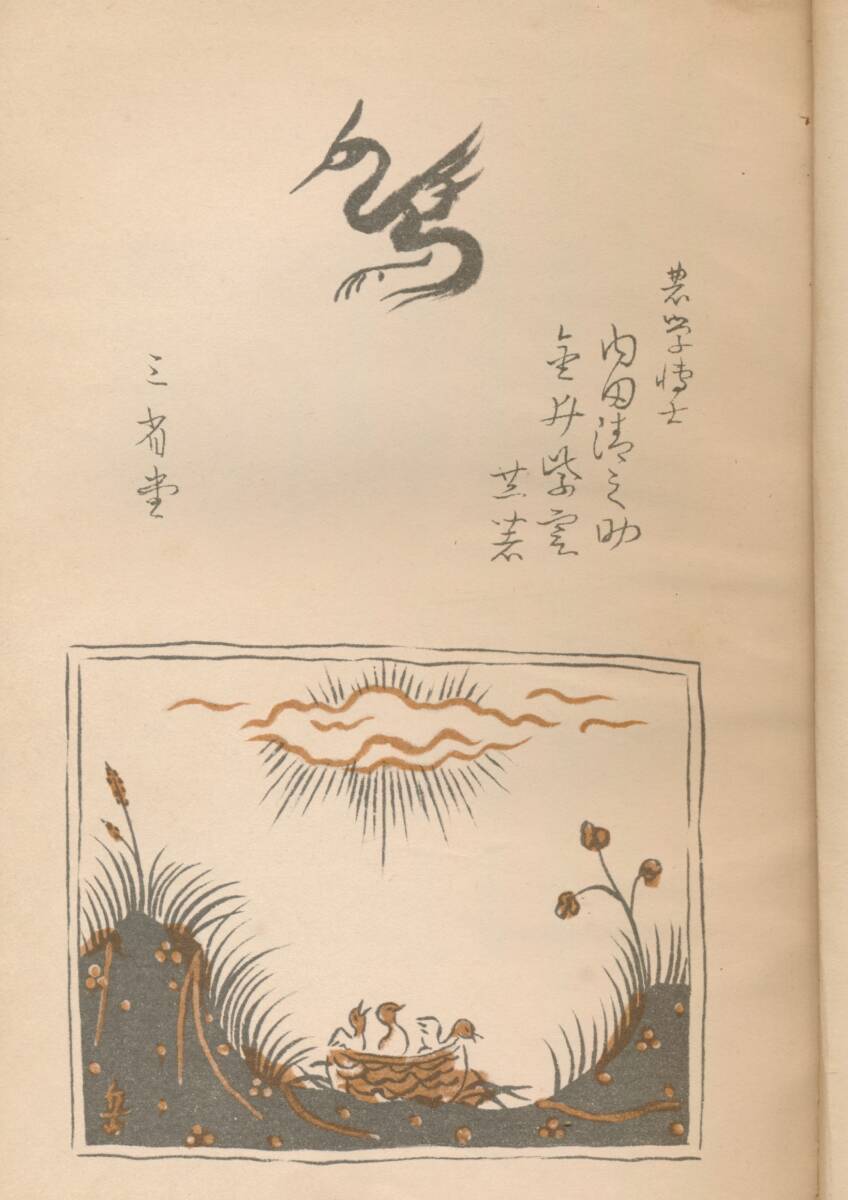 鳥
農学博士
内田清之助
金井紫雲
共著
三省堂